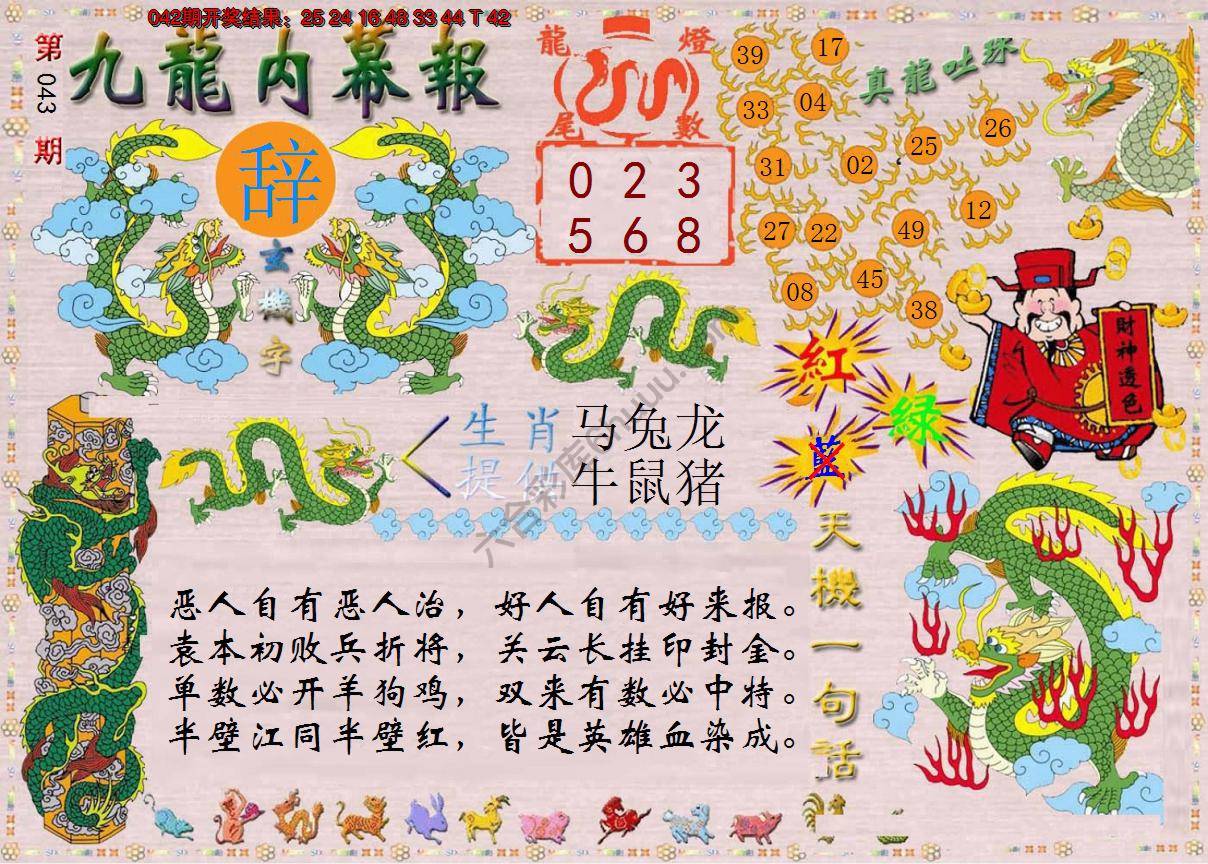 042期开奖结果：25 24 16 48 33 44 T 42
第043期
九龍内幕報
辞
玄機字
龍燈
尾數
0 2 3
5 6 8
真龍吐珠
39 17
33 04
25 26
31 02
12
27 22 49
45
08 38
財神透色
紅
綠
藍
生肖 马兔龙
提供 牛鼠猪
天機一句話
恶人自有恶人治，好人自有好来报。
袁本初败兵折将，关云长挂印封金。
单数必开羊狗鸡，双来有数必中特。
半壁江同半壁红，皆是英雄血染成。